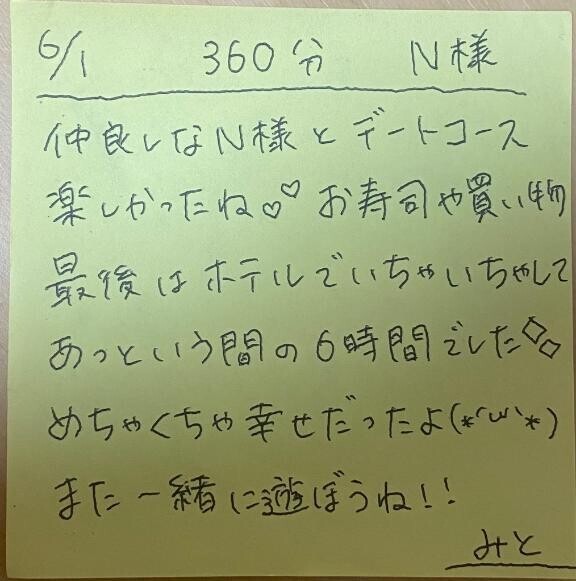 6/1 360分 N様
仲良しなN様とデートコース
楽しかったね♡♡ お寿司や買い物
最後はホテルでいちゃいちゃして
あっという間の6時間でした◇◇
めちゃくちゃ幸せだったよ(*´ω`*)
また一緒に遊ぼうね!!
みと